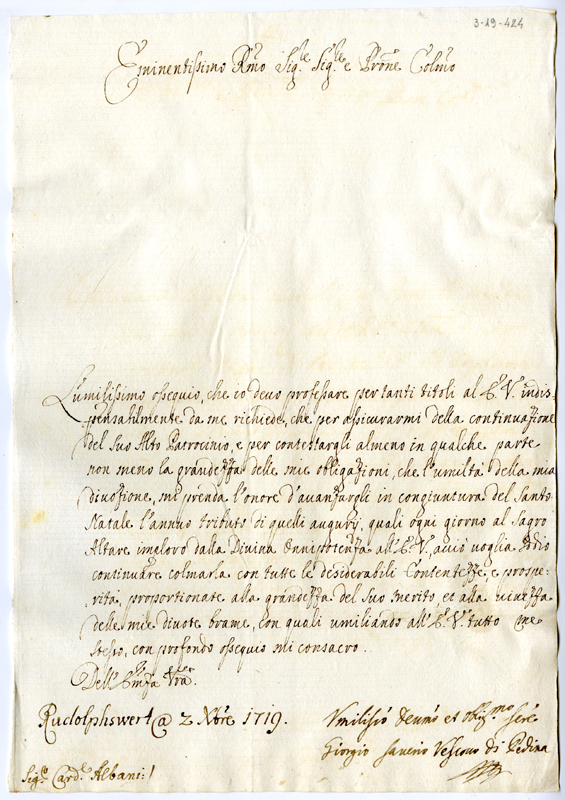 3-19-424
Eminentissimo Rmo Sigre Sigre e Prone Colmo
L'umilissimo ossequio, che io devo professare per tanti titoli al E.V. indis-
pensabilmente da me richiede, che per assicurarmi della continuazione
del Suo Alto Patrocinio, e per contestargli almeno in qualche parte
non meno la grandezza delle mie obligazioni, che l'umiltà della mia
divozione, mi prenda l'onore d'avanzargli in congiuntura del Santo
Natale l'annuo tributo di quelli augurÿ, quali ogni giorno al Sagro
Altare imploro dalla Divina Onnipotenza all'E.V., acciò voglia Iddio
continuare colmarla con tutte le desiderabili Contentezze, e prospe-
rità, proportionate alla grandezza del Suo merito et alla vivezza
delle mie divote brame, con quali umiliando all'E.V. tutto me
stesso, con profondo ossequio mi consacro.
Dell'Emza Vra.
Rudolphswert @ 2 Nbre 1719.
Umilisso Devmo et oblig.mo Sere
Giorgio Saverio Vescovo di Pedina
Sigre Carde Albani:/